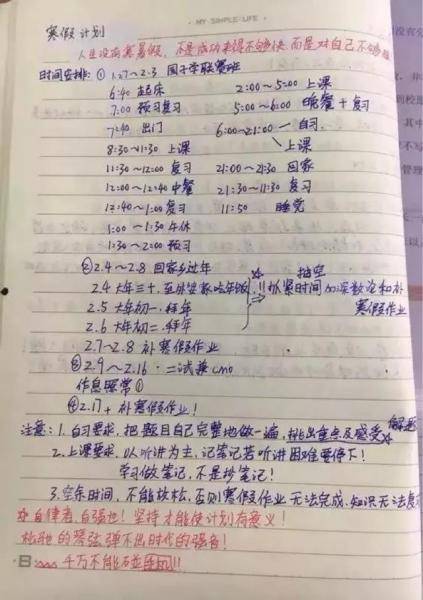 · MY SIMPLE LIFE ·
寒假计划
人生没有寒暑假,不是成功来得不够快,而是对自己不够狠
时间安排:① 1.27~2.3 国子学联赛班
6:40 起床 2:00~5:00 上课
7:00 预习复习 5:00~6:00 晚餐+复习
7:40 出门 6:00~21:00 自习
上课
8:30~11:30 上课
11:30~12:00 复习 21:00~21:30 回家
12:00~12:40 中餐 21:30~11:30 复习
12:40~1:00 复习 11:50 睡觉
1:00~1:30 午休
1:30~2:00 预习
② 2.4~2.8 回家乡过年
抽空
2.4 大年三十,至外公家吃年饭
!! 抓紧时间加深数论和补寒假作业
2.5 大年初一.拜年
2.6 大年初二.拜年
2.7~2.8 补寒假作业
③ 2.9~2.16 · 二试兼cmo
作息照常①
④ 2.17+ 补寒假作业!
注意:1.自习要求,把题目自己完整地做一遍,挑出重点及感受 解题
2.上课要求,以听讲为主,记笔记若听讲困难要停下!
学习做笔记,不是抄笔记!
3.空余时间,不能放松,否则寒假作业无法完成,知识无法复
自律者,自强也!坚持才能使计划有意义!
松弛的琴弦弹不出时代的强音!
千万不能碰手机!!